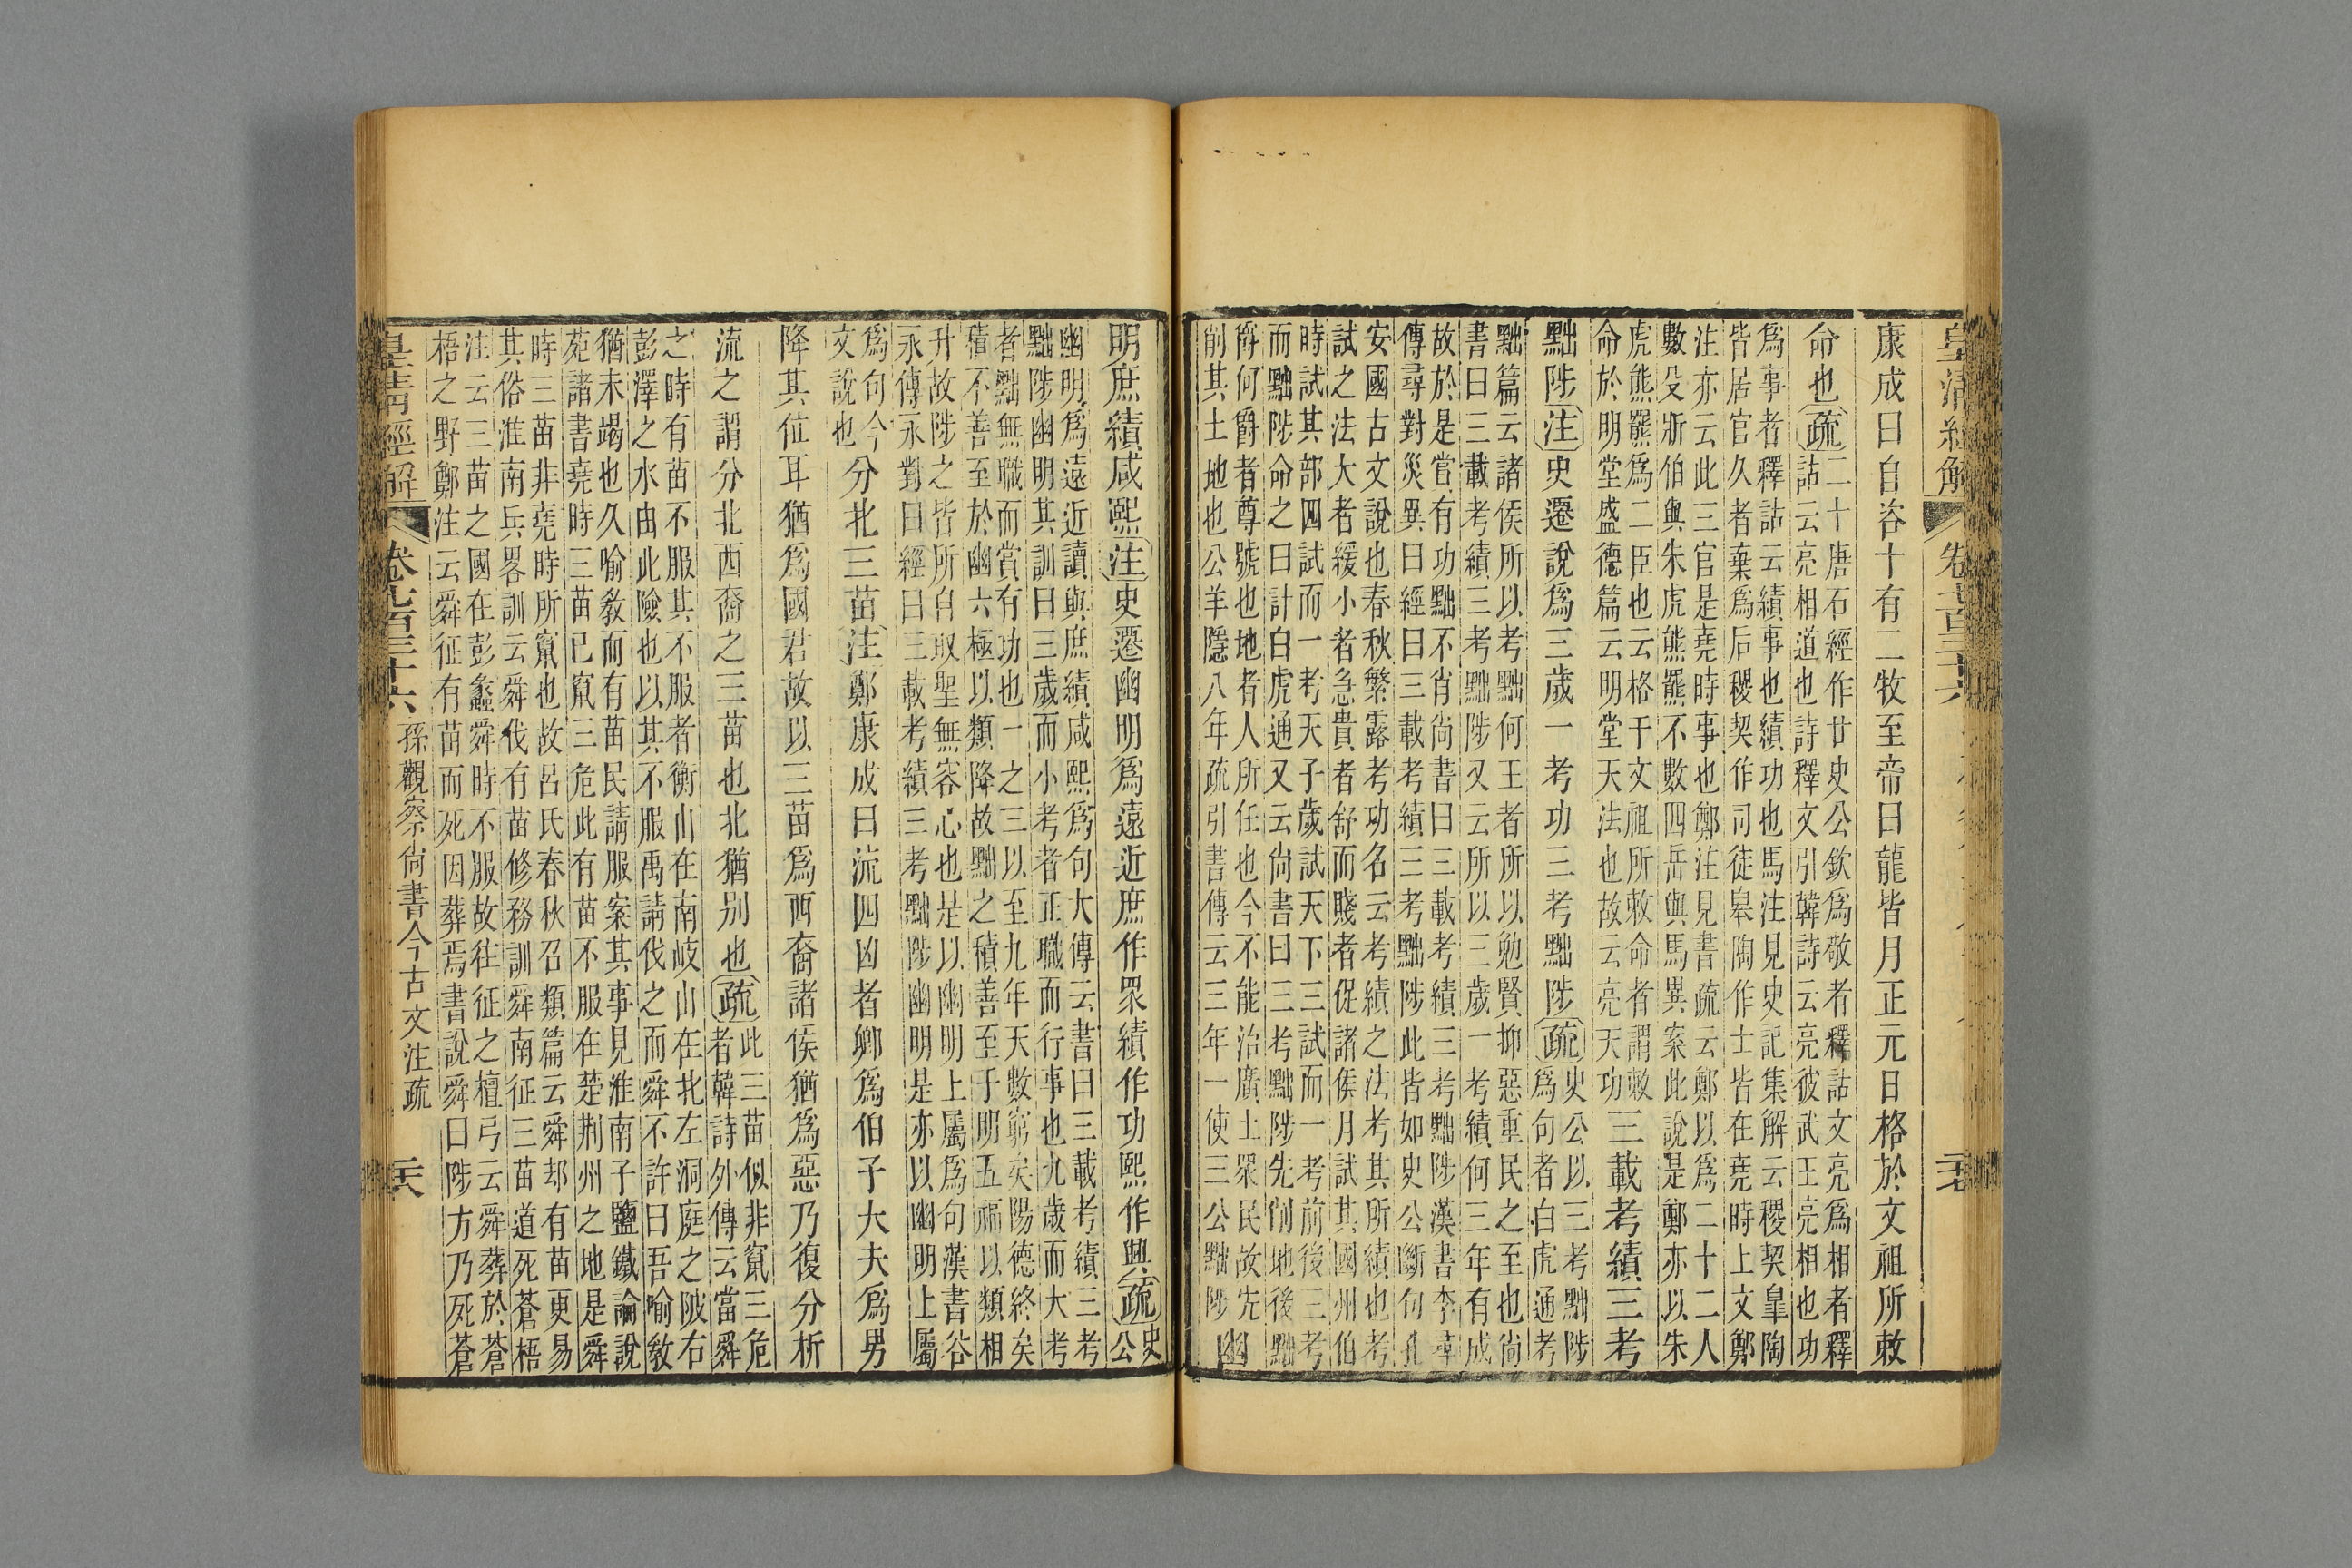 皇清經解
康成曰自咨十有二牧至帝曰龍皆月正元日格於文祖所敕
命也疏
二十唐石經作廿史公欽爲敬者釋詁文亮爲相者釋
詁云亮相道也詩釋文引韓詩云亮彼武王亮相也功
爲事者釋詁云績事也績功也馬注見史記集解云稷契臯陶
皆居官久者棄爲后稷契作司徒皋陶作士皆在堯時上文鄭
注亦云此三官是堯時事也鄭注見書疏云鄭以爲二十二人
數殳斨伯與朱虎熊羆不數四岳與馬異案此說是鄭亦以朱
虎熊羆爲二臣也云格于文祖所敕命者謂敕
命於明堂盛德篇云明堂天法也故云亮天功
三載考績三考
黜陟注史遷說爲三歲一考功三考黜陟疏
史公以三考黜陟
爲句者白虎通考
黜篇云諸侯所以考黜何王者所以勉賢抑惡重民之至也尚
書曰三載考績三考黜陟又云所以三歲一考績何三年有成
故於是賞有功黜不肖尚書曰三載考績三考黜陟漢書李尋
傳尋對災異曰經曰三載考績三考黜陟此皆如史公斷句孔
安國古文說也春秋繁露考功名云考績之法考其所績也考
試之法大者緩小者急貴者舒而賤者促諸侯月試其國州伯
時試其部四試而一考天子歲試天下三試而一考前後三考
而黜陟命之曰計白虎通又云尚書曰三考黜陟先削地後黜
爵何爵者尊號也地者人所任也今不能治廣土眾民故先
削其土地也公羊隱八年疏引書傳云三年一使三公黜陟
幽
明庶績咸熙注史遷幽明爲遠近庶作眾績作功熙作興疏
史
公
幽明爲遠近讀與庶績咸熙爲句大傳云書曰三載考績三考
黜陟幽明其訓曰三歲而小考者正職而行事也九歲而大考
者黜無職而賞有功也一之三以至九年天數窮矣陽德終矣
積不善至於幽六極以類降故黜之積善至于明五福以類相
升故陟之皆所自取聖無容心也是以幽明上屬爲句漢書谷
永傳永對曰經曰三載考績三考黜陟幽明是亦以幽明上屬
爲句今
文說也
分北三苗注鄭康成曰流四凶者卿爲伯子大夫爲男
降其位耳猶爲國君故以三苗爲西裔諸侯猶爲惡乃復分析
流之謂分北西裔之三苗也北猶别也疏
此三苗似非竄三危
者韓詩外傳云當舜
之時有苗不服其不服者衡山在南岐山在北左洞庭之陂右
彭澤之水由此險也以其不服禹請伐之而舜不許曰吾喻教
猶未竭也久喻教而有苗民請服案其事見淮南子鹽鐵論說
苑諸書堯時三苗已竄三危此有苗不服在楚荆州之地是舜
時三苗非堯時所竄也故呂氏春秋召類篇云舜却有苗更易
其俗淮南兵畧訓云舜伐有苗修務訓舜南征三苗道死蒼梧
注云三苗之國在彭蠡舜時不服故往征之檀弓云舜葬於蒼
梧之野鄭注云舜征有苗而死因葬焉書說舜曰陟方乃死蒼
皇清經解
卷七百三十六
孫觀察尚書今古文注疏